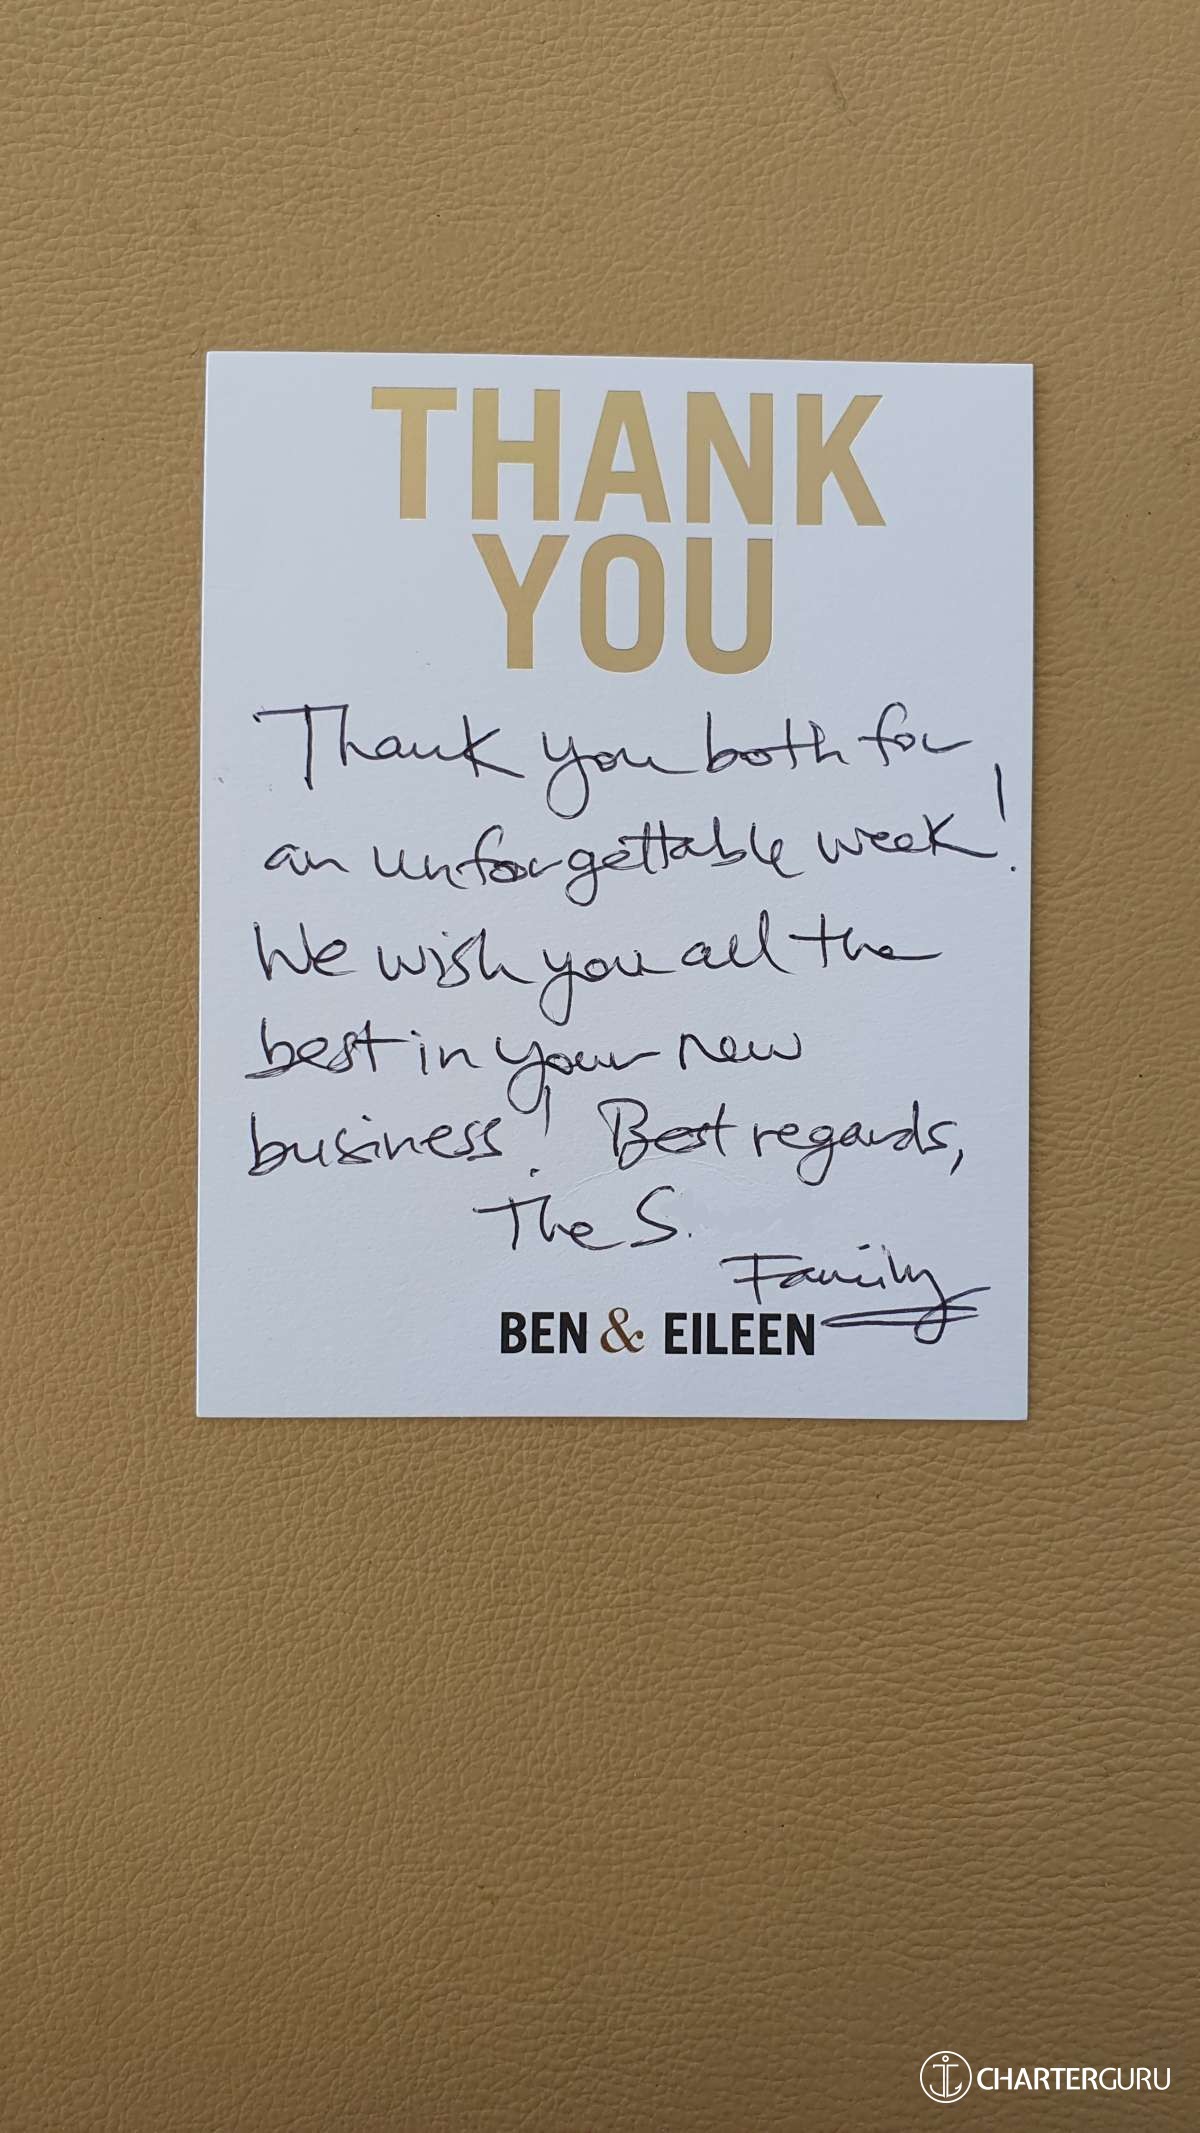 THANK
YOU
Thank you both for
an unforgettable week!
We wish you all the
best in your new
business! Best regards,
The S.
Family
BEN & EILEEN
CHARTERGURU